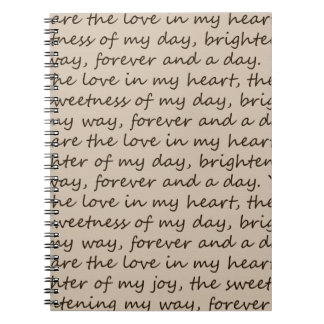 are the love in my heart
tness of my day, brighte
way, forever and a day.
the love in my heart, the
sweetness of my day, brig
my way, forever and a d
are the love in my heart
hter of my day, brighten
way, forever and a day. Y
the love in my heart, the
sweetness of my day, brig
my way, forever and a d
are the love in my hear
hter of my joy, the sweet
htening my way, forever